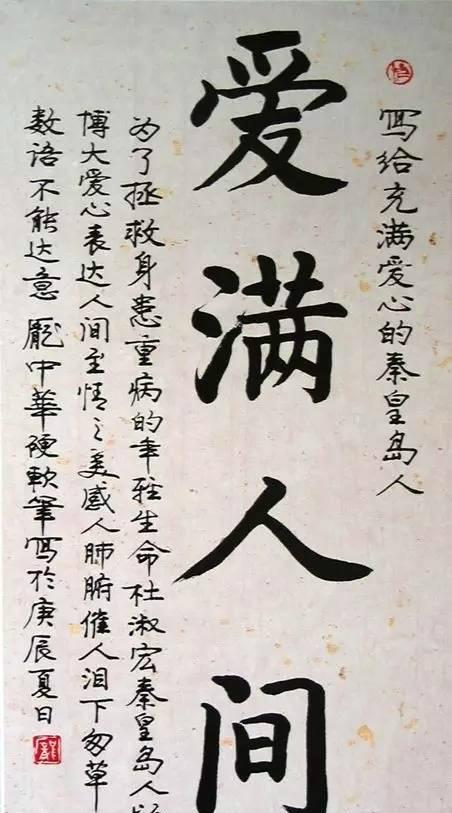 冩给充满爱心的秦皇岛人
爱满人间
为了拯救身患重病的雅生命杜淑宏秦皇岛人
博大爱心表达人间至情之美感人肺腑催人泪下匆草
数语不能达意 龐中華硬軟筆冩於庚辰夏日